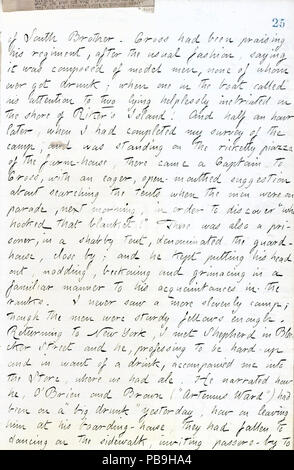 25
of South Brother. Gross had been praising
his regiment, after the usual fashion, saying
it was composed of model men, none of whom
ever got drunk; when one in the boat called
his attention to two lying helplessly inebriated on
the shore of Riker's Island! And half an hour
later, when I had completed my survey of the
camp, and was standing on the rickety piazza
of the farm-house, there came a Captain to
Gross, with an eager, open-mouthed suggestion
about searching the tents when the men were on
parade, next morning, "in order to discover who
hooked that blanket." There was also a pri-
soner, in a shabby tent, denominated the guard-
house, close by; and he kept putting his head
out, nodding, beckoning and grimacing in a
familiar manner to his acquaintances in the
ranks. I never saw a more slovenly camp;
though the men were sturdy fellows enough.
Returning to New York I met Shepherd in Blee-
cker Street and he, professing to be hard-up
and in want of a drink, accompanied me into
the Store, where we had ale. He narrated how
he, O'Brien and Brown ("Artemus Ward") had
been on "a big drunk" yesterday, how on leaving
him at his boarding-house they had fallen to
dancing on the sidewalk, inviting passers-by to
alamy
Image ID: PB9HA4
www.alamy.com